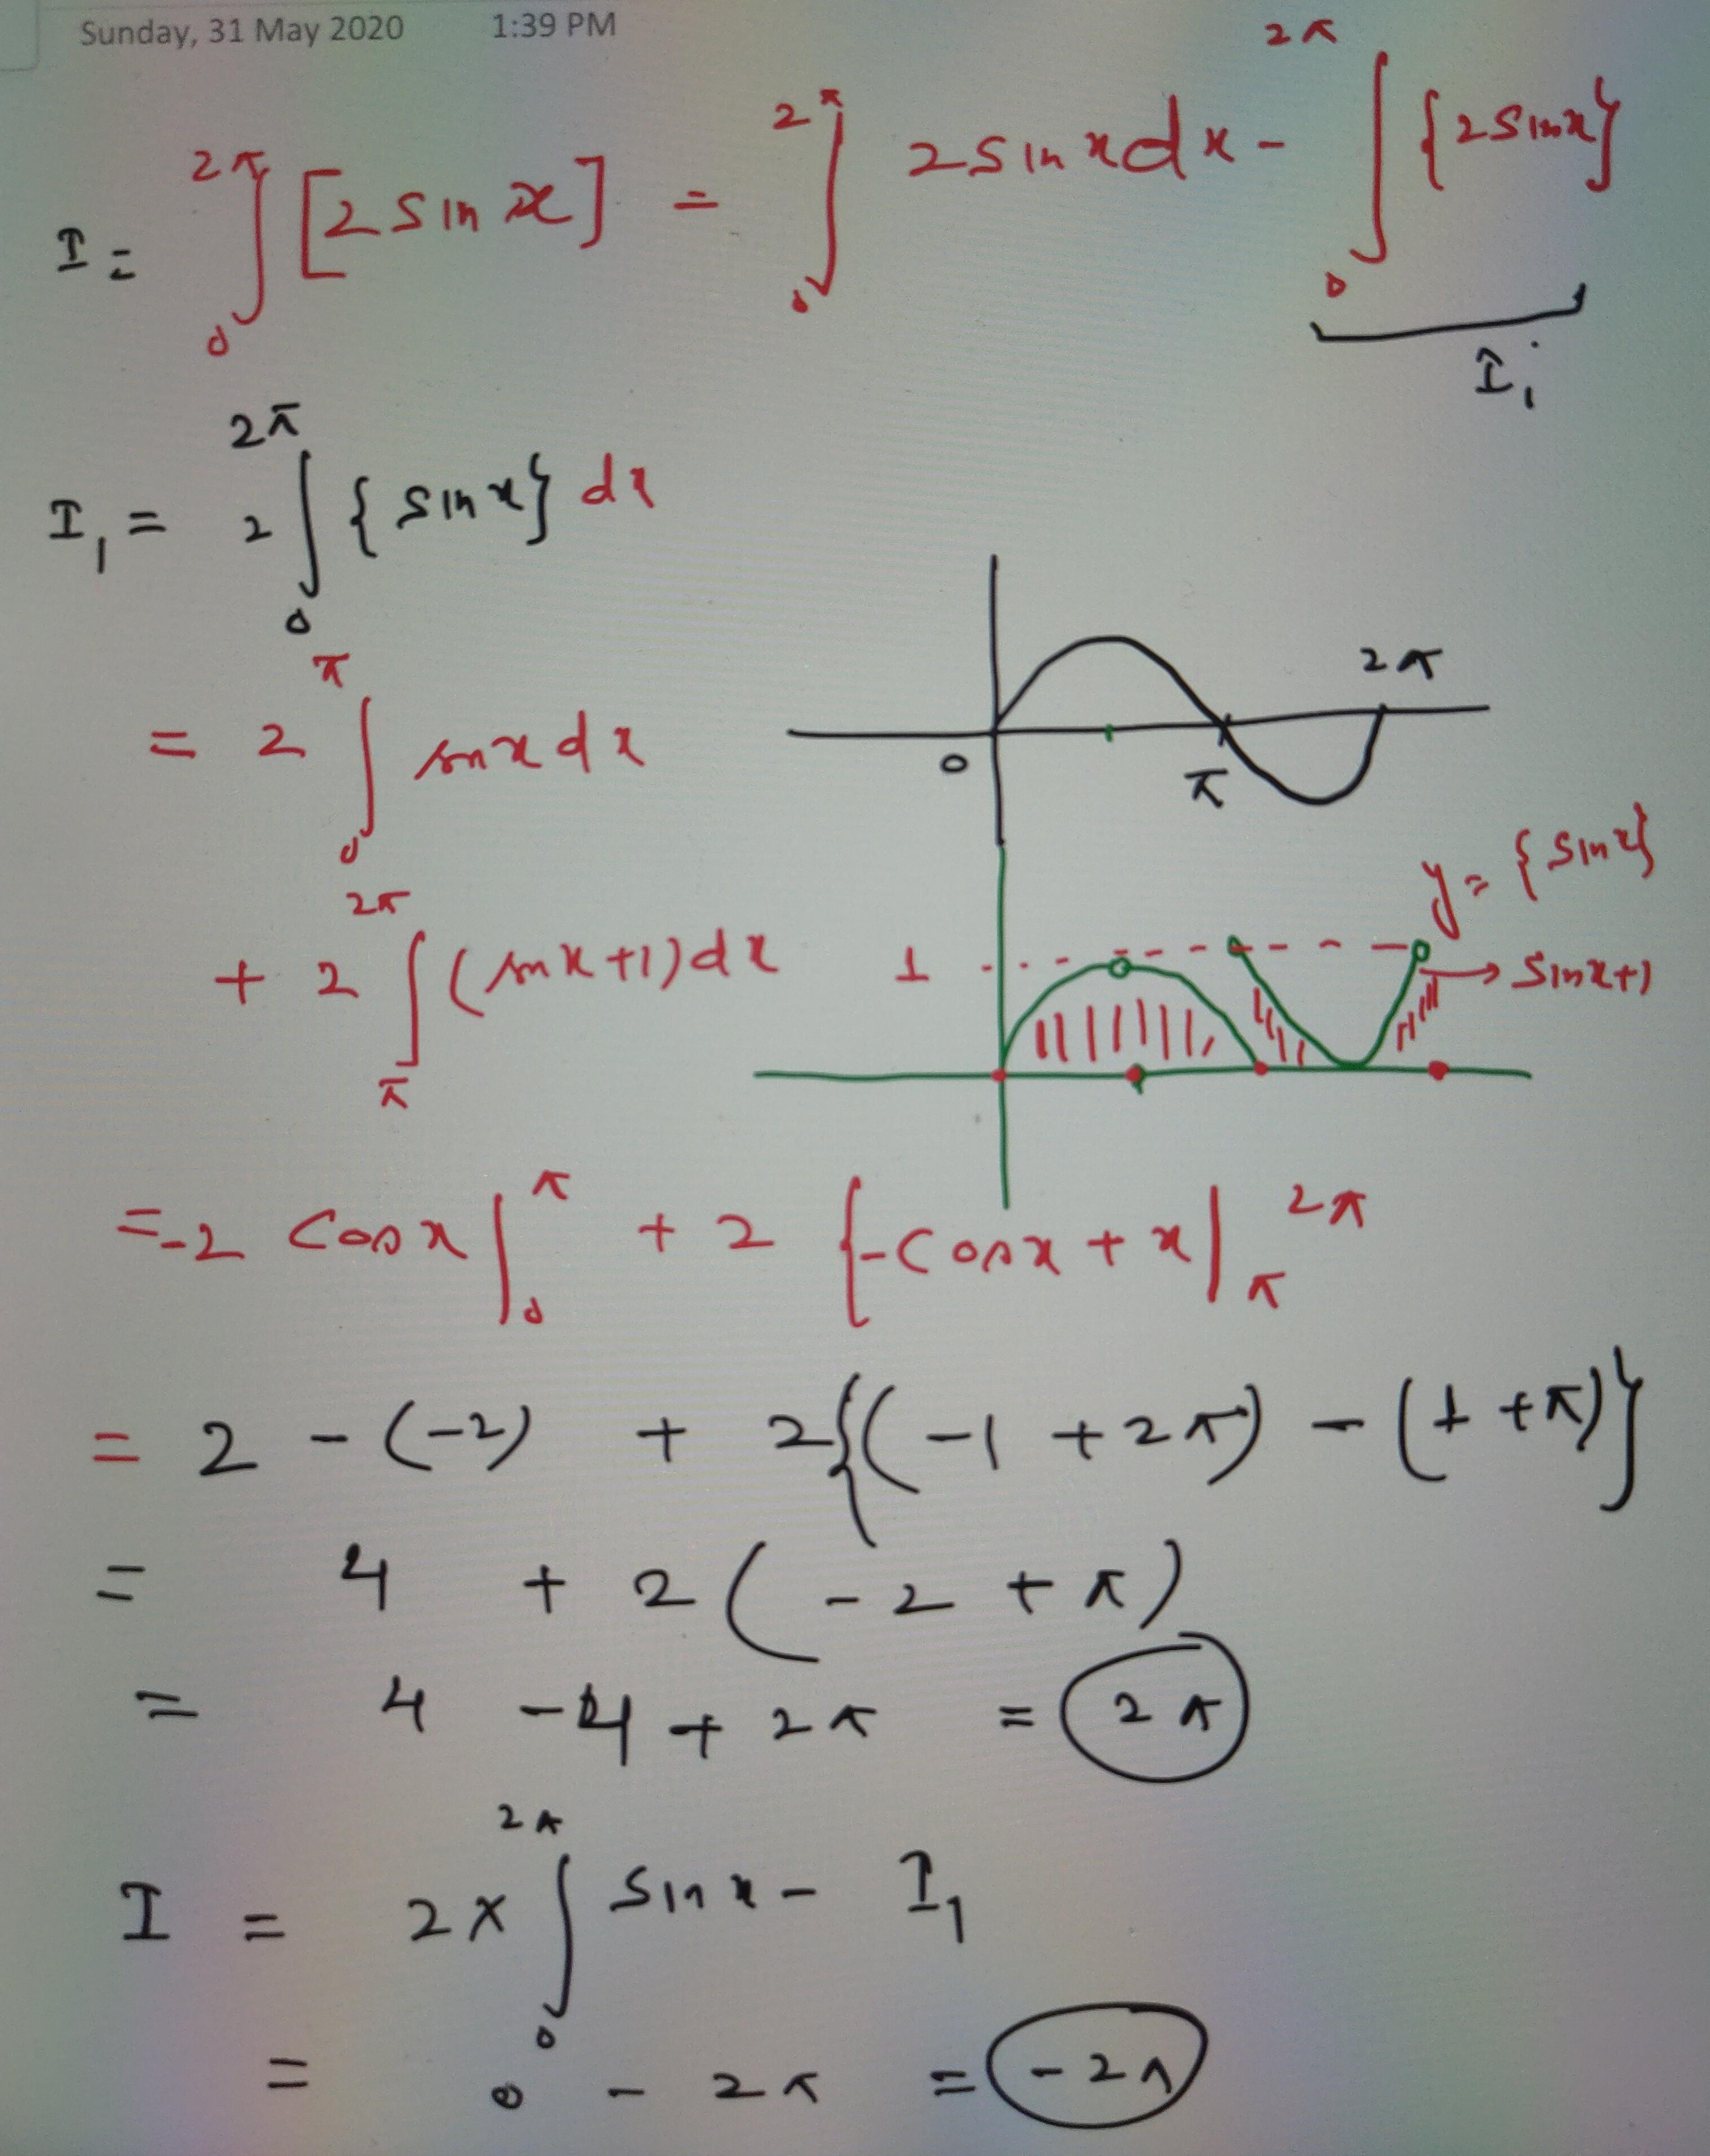 Sunday, 31 May 2020 1:39 PM
I = ∫₀^2π [2 sin x] = ∫₀^2π 2 sin x dx - ∫₀^2π {2 sin x}
I₁
I₁ = 2 ∫₀^2π {sin x} dx
= 2 ∫₀^π sin x dx
0 π 2π
+ 2 ∫_π^2π (sin x + 1) dx
y = {sin x}
1
→ sin x + 1
= -2 cos x |₀^π + 2 {-cos x + x |_π^2π
= 2 - (-2) + 2{(-1 + 2π) - (1 + π)}
= 4 + 2 (-2 + π)
= 4 - 4 + 2π = 2π
I = 2 × ∫₀^2π sin x - I₁
= 0 - 2π = -2π